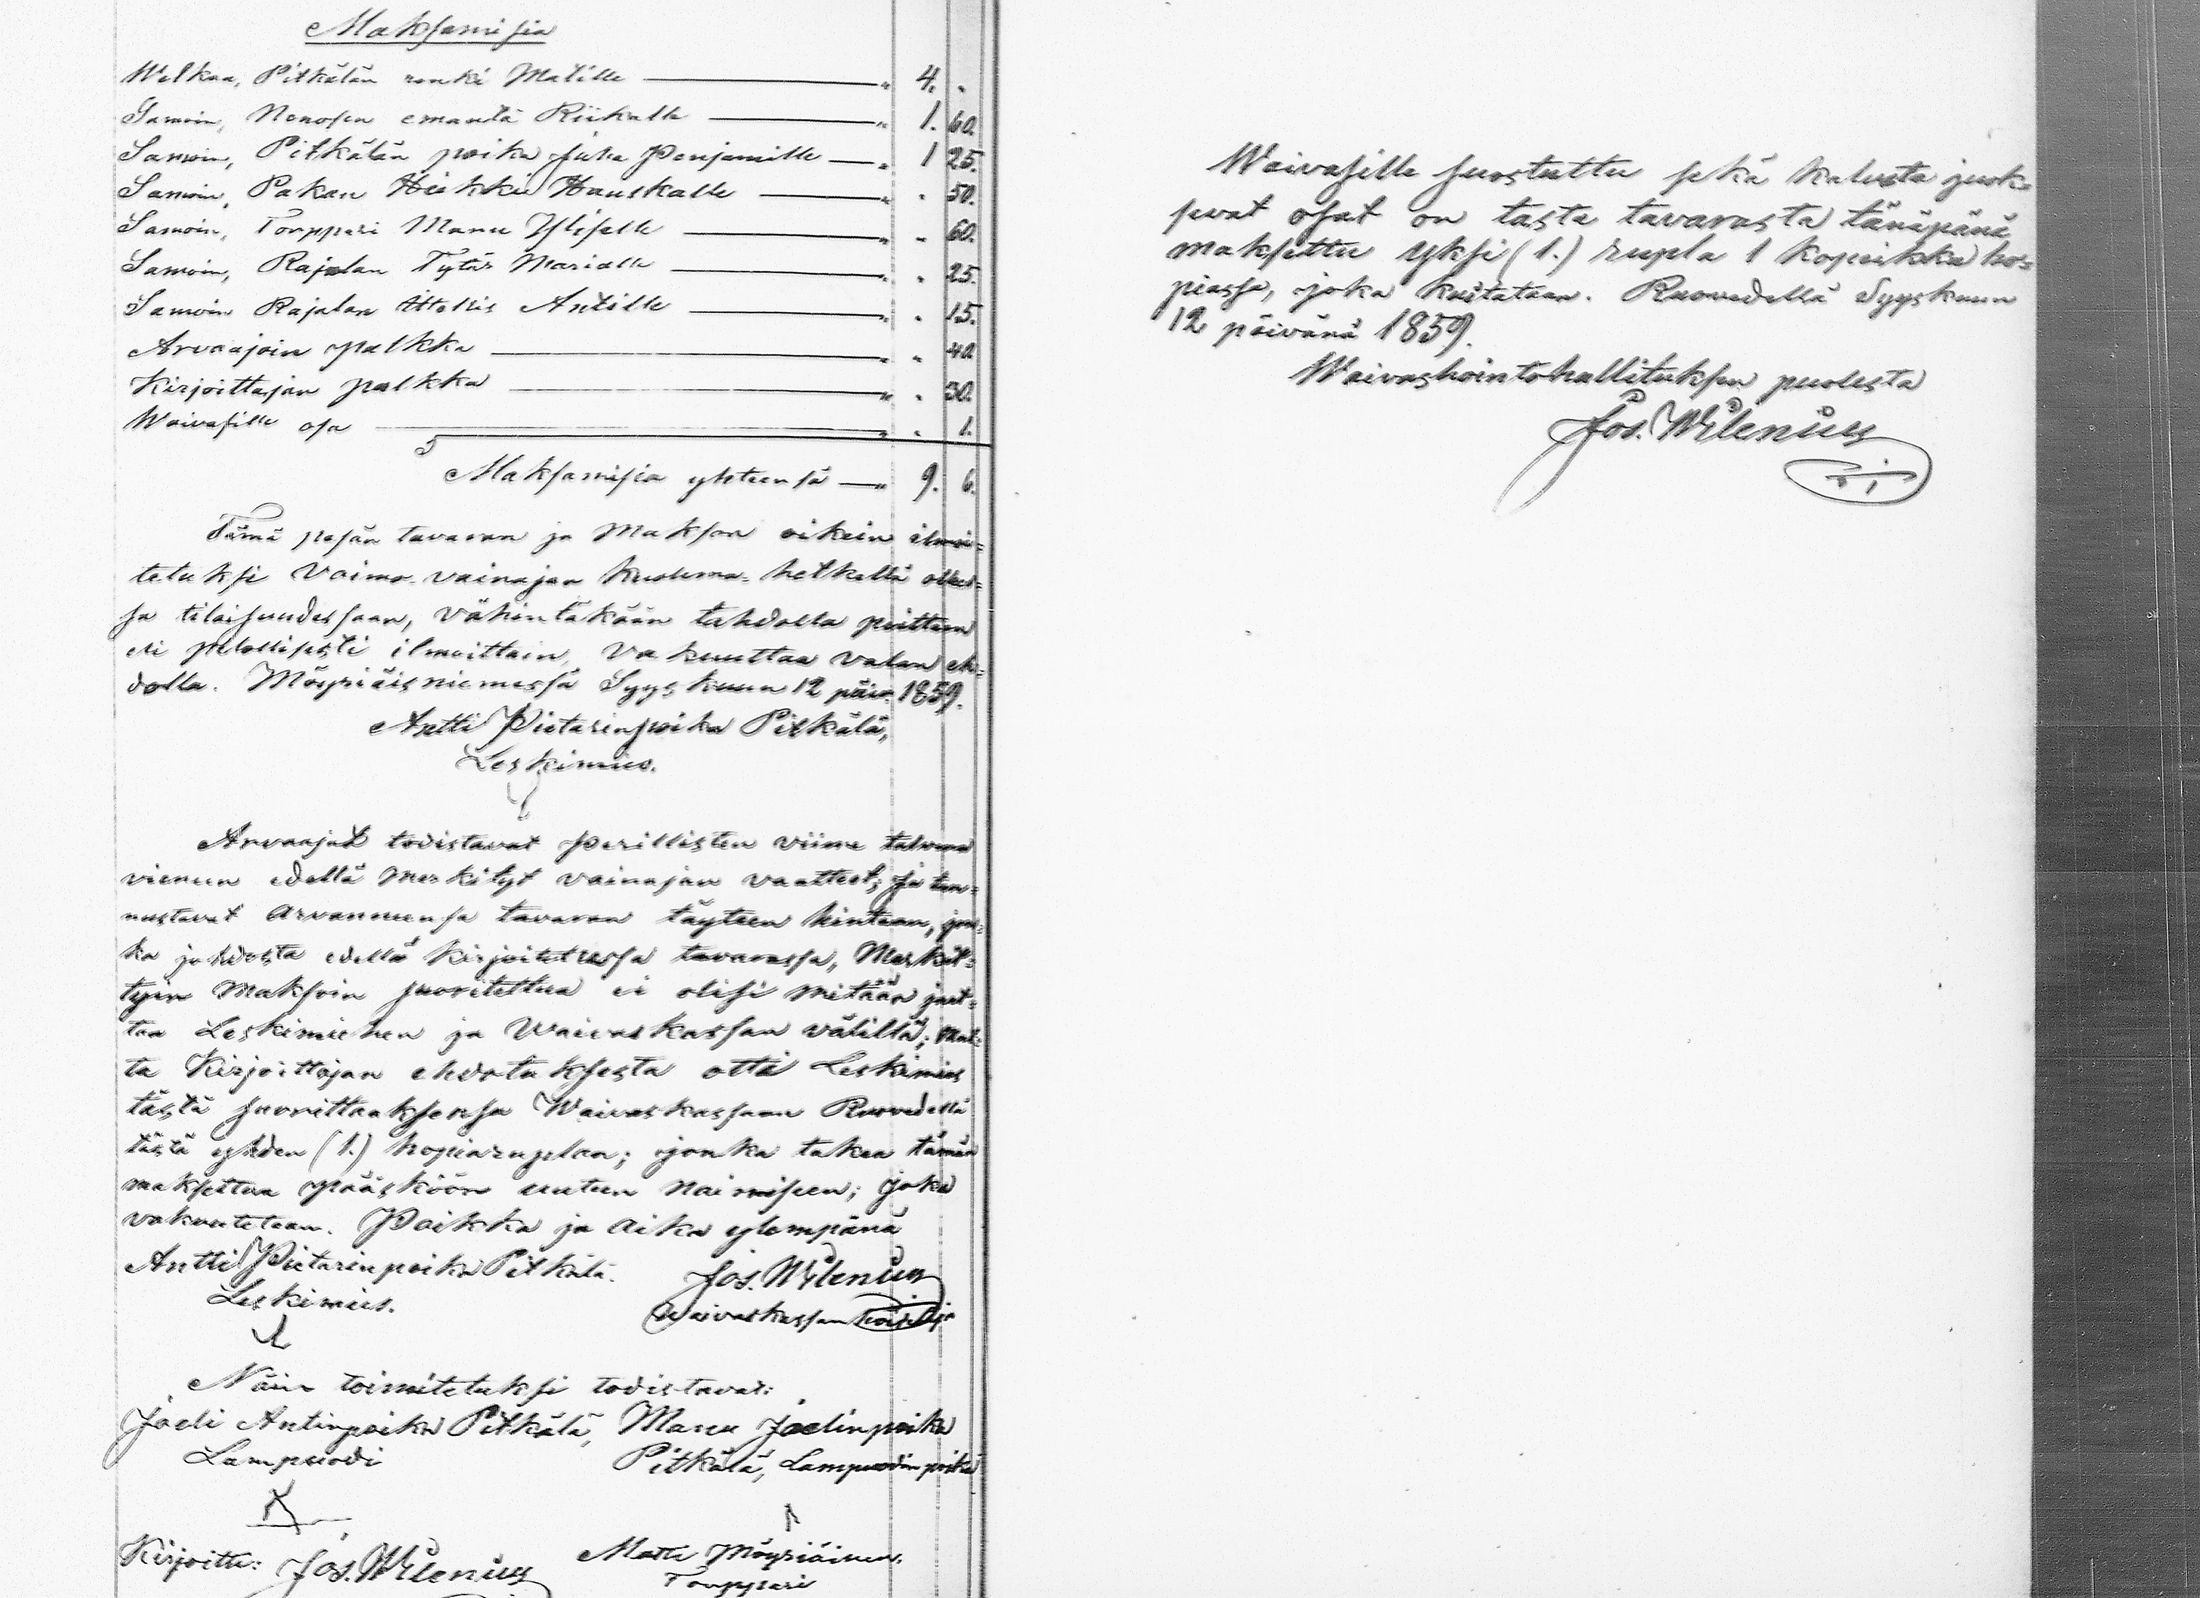 Maksamisia
Welkaa, Pitkälän renki Matille — " 4. "
Samoin, Nenosen emäntä Riikalle — " 1. 60.
Samoin, Pitkälän poika Juha Penjamille — " 1 25.
Samoin, Pakan Heikki Hauskalle — " " 50.
Samoin, Torppari Manu Yliselle — " " 60.
Samoin, Rajalan Tytär Marialle — " " 25.
Samoin Rajalan Ittellis Antille — " " 15.
Arvaajoin palkka — " " 40
Kirjoittajan palkka — " " 30.
Waivasille osa — " " 1.
Maksamisia yhteensä — " 9. 6.
Tämä pesän tavaran ja Makson oikein ilmoi=
tetuksi Vaimo-vainajan kuolema-hetkellä olleos=
sa tilaisuudessaan, vähintäkään tahdolla poittam
eli petollisesti ilmoittain, vakuuttaa valan eh=
dolla. Möyriäisniemessä Syyskuun 12 päiv. 1859.
Antti Pietarinpoika Pitkälä,
Leskimies.
Arvaajat todistavat perillisten viime talvena
vieneen edellä merkityt vainajan vaatteet; ja tun=
nustavat arvanneensa tavaran täyteen hintaan, jon=
ka johdosta edellä kirjoitetussa tavarassa, Merkit=
tyin Maksoin suoritettua ei olisi mitään jaet=
taa Leskimiehen ja Waivaskassan välillä; mut=
ta Kirjoittajan ehdotuksesta otti Leskimies
tästä suorittaaksensa Waivaskassaan Ruovedellä
tästä yhden (1.) hopiaruplan; jonka takea tämän
maksettua pääsköön uuteen naimiseen; joka
vakuutetaan. Paikka ja aika ylempänä
Antti Pietarinpoika Pitkälä. Jos. Wilenius
Leskimies. Waivaskassan hoitaja
Näin toimitetuksi todistavat:
Joeli Antinpoika Pitkälä, Manu Joelinpoika
Lampuodi Pitkälä, Lampuodin poika
Kirjoitti: Jos. Wilenius Matti Möyriäinen.
Torppari
Waivasille suostuttu sekä kalusta juok=
sevat osat on tästä tavarasta tänäpänä
maksettu yksi (1.) rupla 1 kopeikka ho=
piassa, joka kuitataan. Ruovedellä Syyskuun
12 päivänä 1859.
Waivashointohallituksen puolesta
Jos. Wilenius